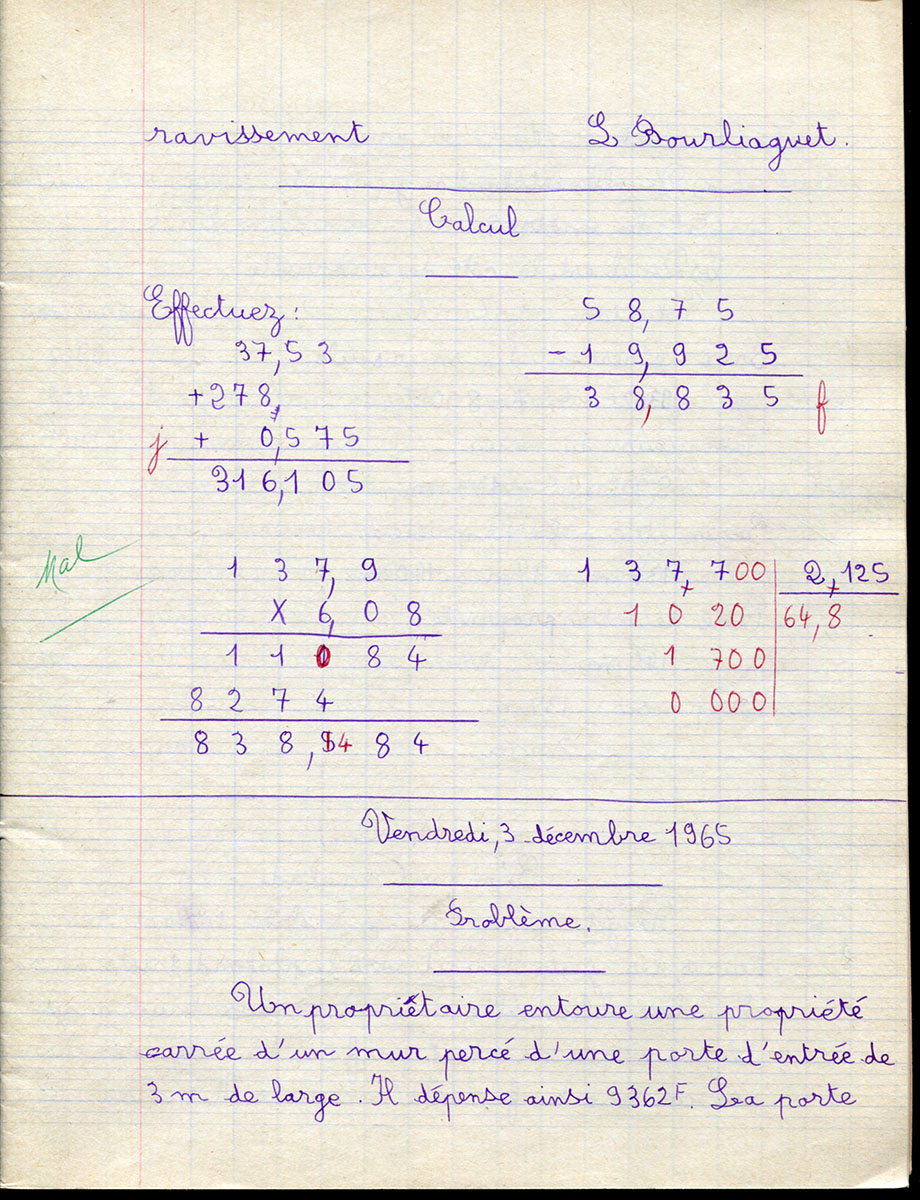 ravissement L Bourliaguet.
Calcul
Effectuez:
37,53
+278,
j + 0,575
316,105
5 8,7 5
- 1 9,9 2 5
3 8,8 3 5 f
Mal
1 3 7,9
X 6,0 8
1 1 0 8 4
8 2 7 4
8 3 8,4 8 4
1 3 7,700 2,125
1 0 20 64,8
1 700
0 000
Vendredi, 3 décembre 1965
Problème.
Un propriétaire entoure une propriété
carrée d'un mur percé d'une porte d'entrée de
3 m de large. Il dépense ainsi 9362F. La porte